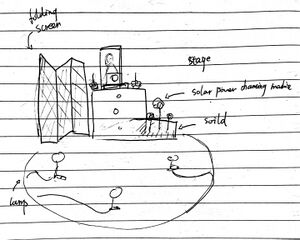 folding
screen
stage
solar power chansing machie
swild
lamp